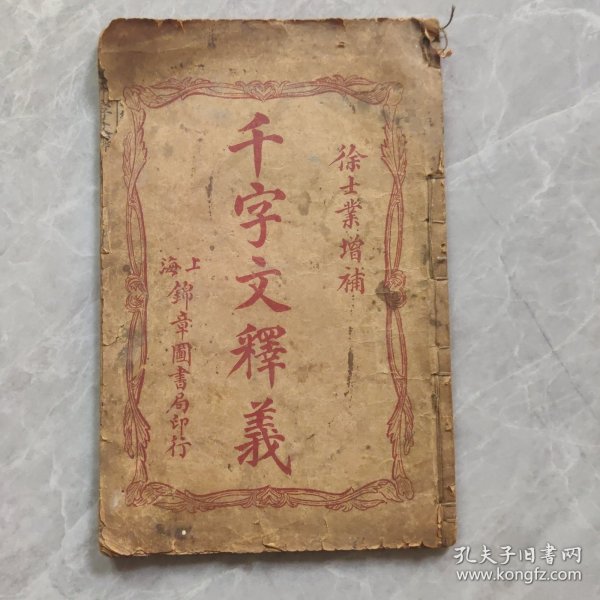 徐士業增補
千字文釋義
上海
錦章圖書局印行
孔夫子旧书网
www.kongfz.com